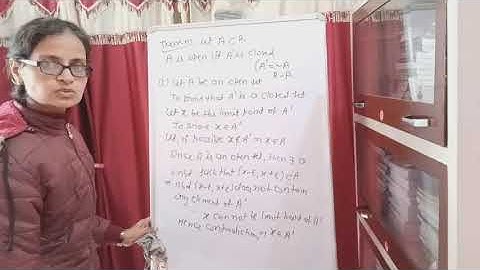 Theorem: Let A ⊂ R.
A is open iff A' is closed
(A' = ~A
R-A
(i) Let A be an open set
To prove that A' is a closed set
Let x be the limit point of A'
To prove x ∈ A'
Let, if possible x ∉ A' ⇒ x ∈ A
Since A is an open set, then ∃ a
nbd such that (x-ε, x+ε) ⊂ A
⇒ nbd (x-ε, x+ε) does not contain
any element of A'
x cannot be limit point of A'
Hence contradiction, ∴ x ∈ A'